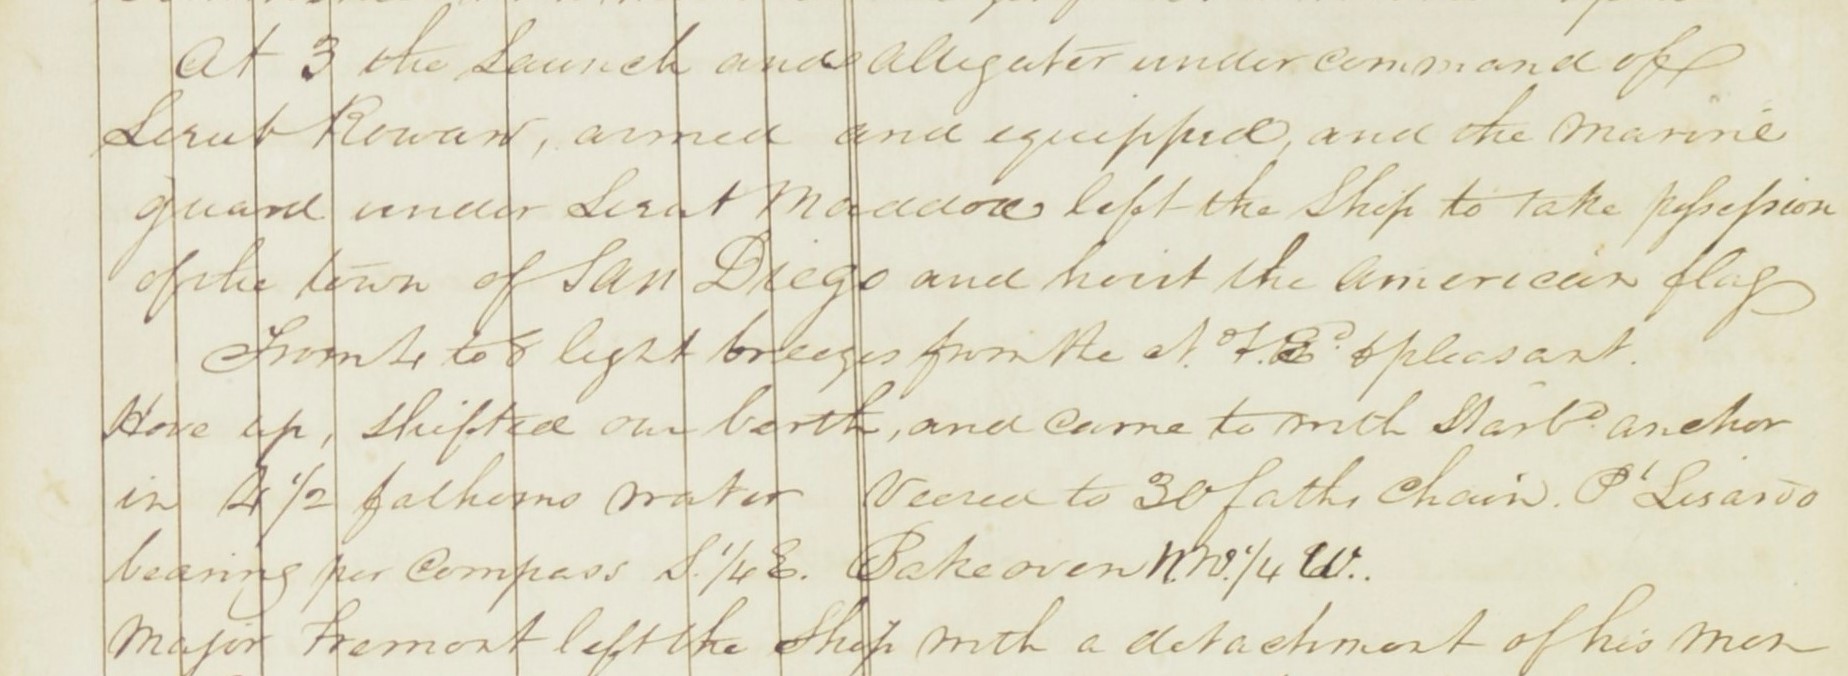 At 3 the Launch and Alligator under command of
Lieut Rowan, armed and equipped, and the marine
guard under Lieut Maddox left the Ship to take possession
of the town of San Diego and hoist the American flag
From 4 to 8 light breezes from the & pleasant.
Hove up, shifted our berth, and came to with Starbd anchor
in 4 1/2 fathoms water Veered to 30 faths chain. Pt Lisardo
bearing per compass S. 1/4 E. Bakeoven N.W. 1/4 W.
Major Fremont left the Ship with a detachment of his men